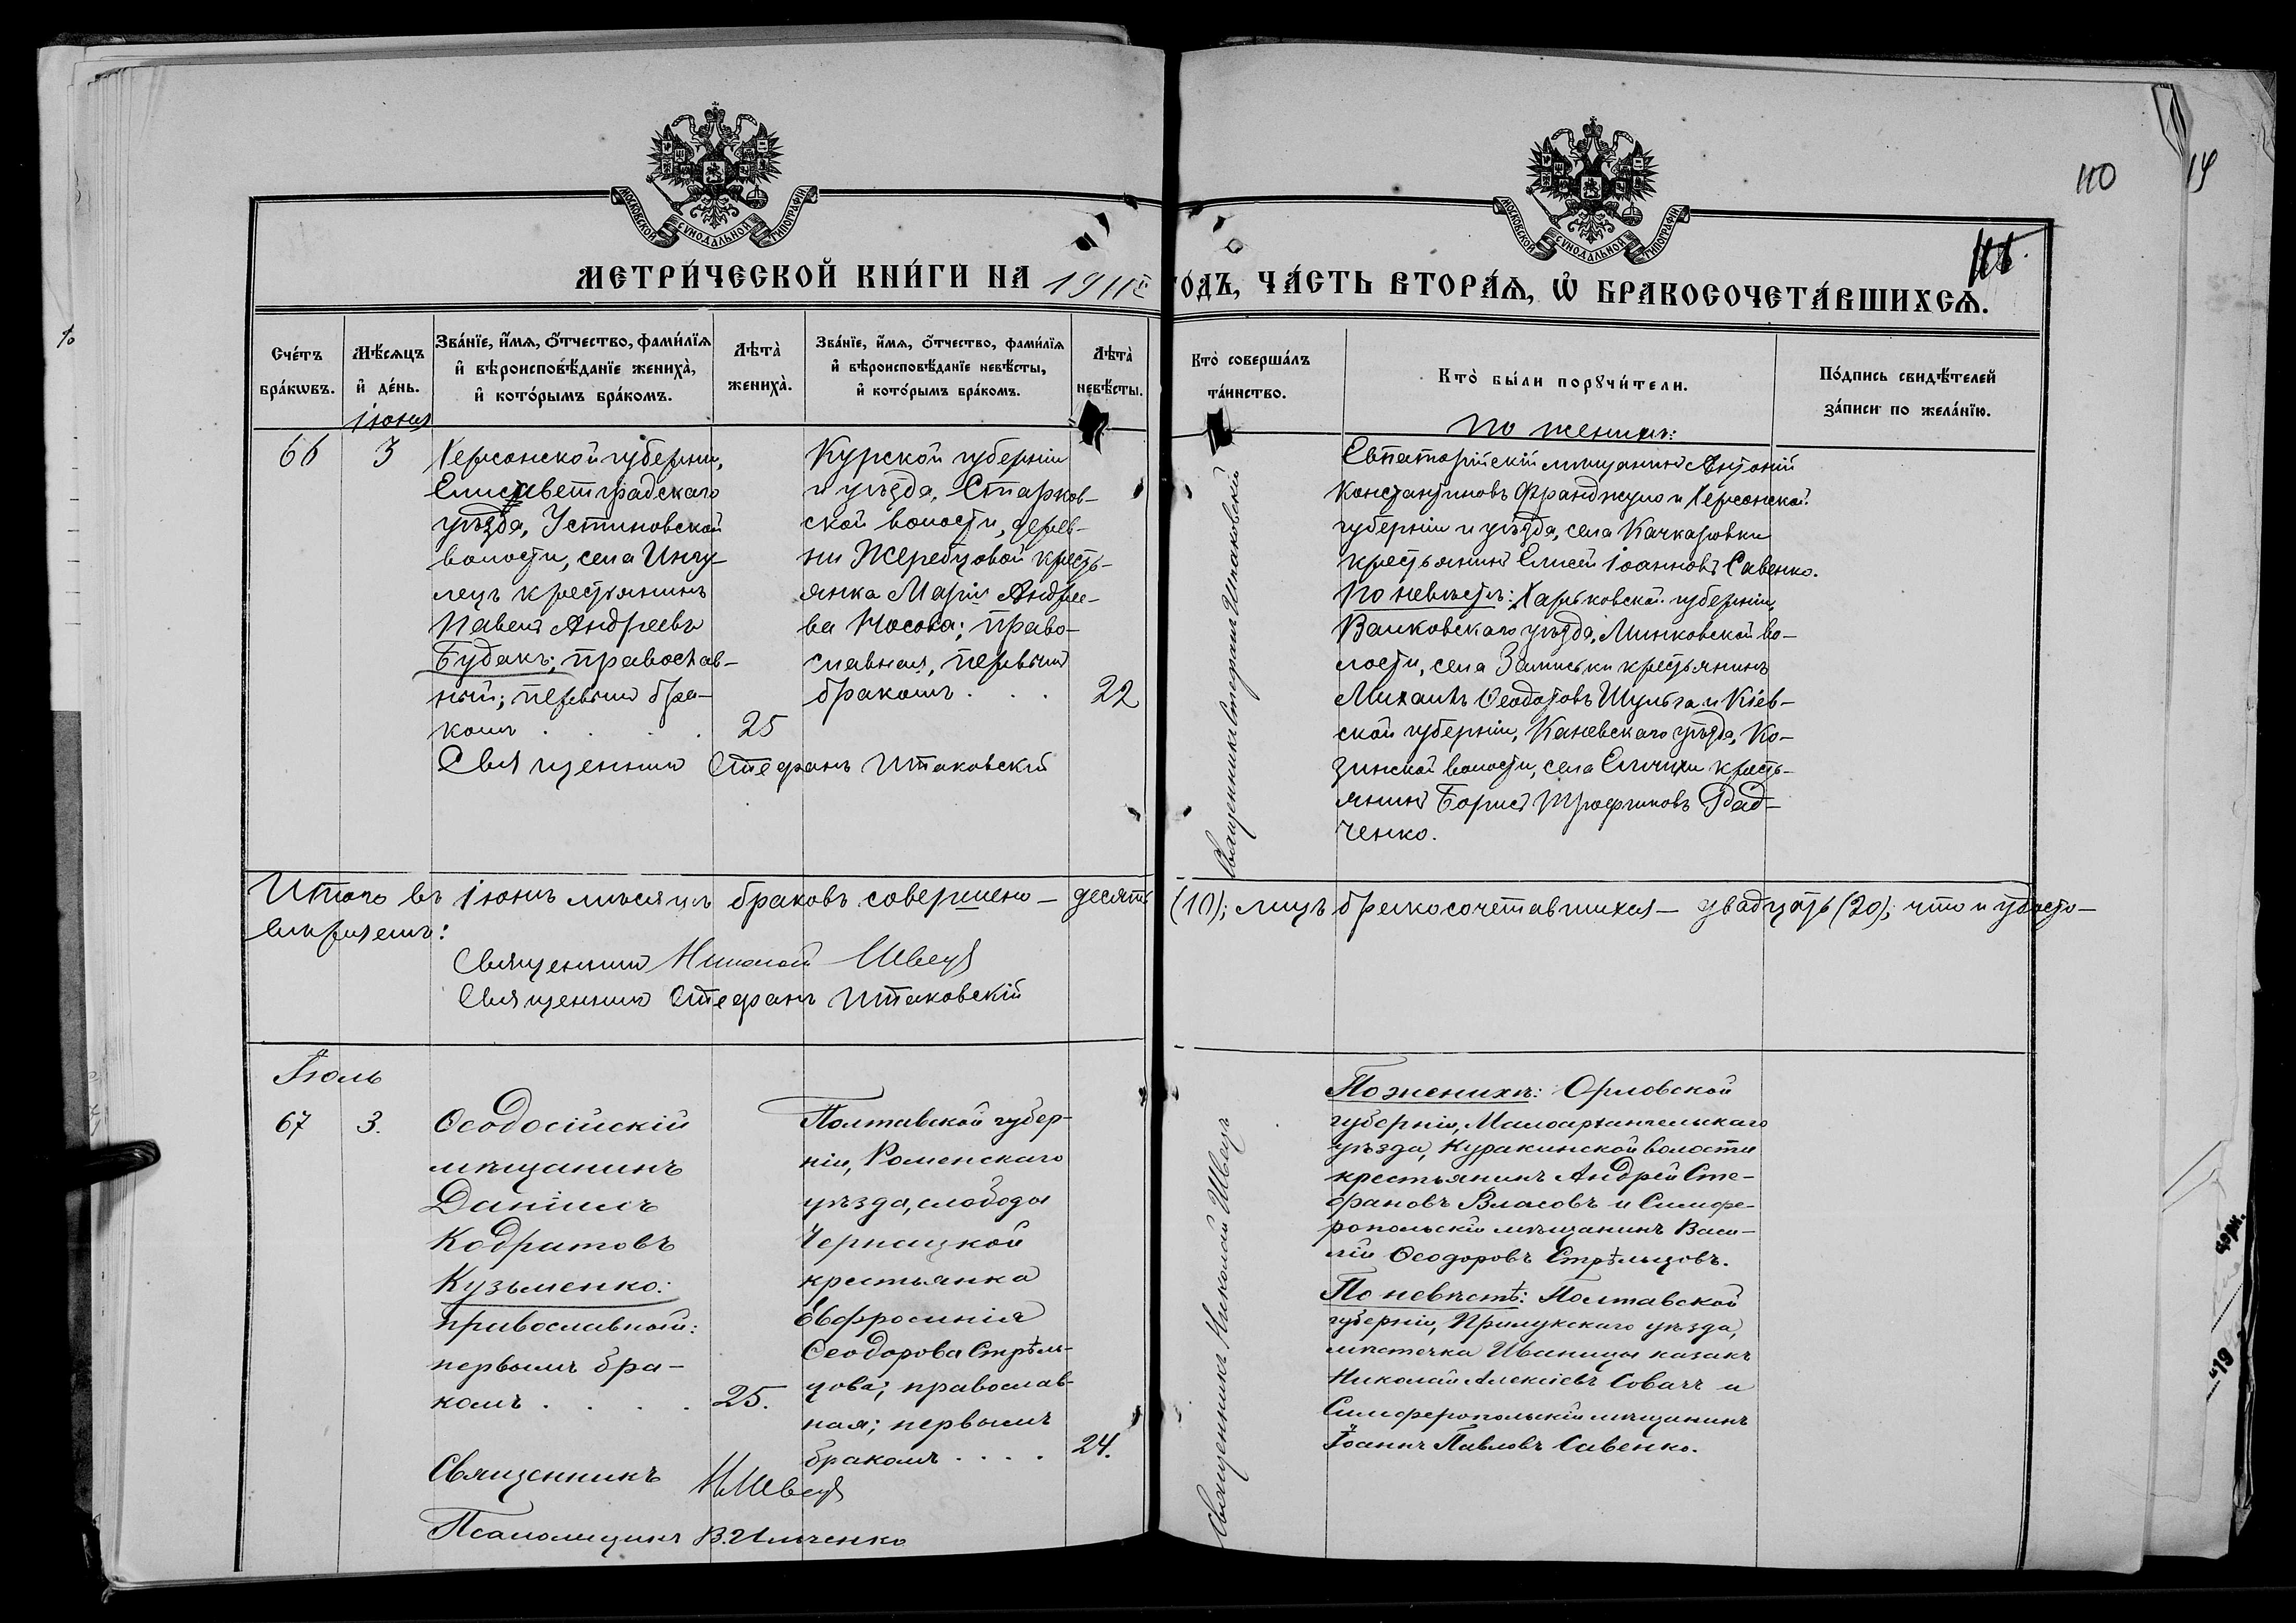 110
19
МОСКОВСКОЙ СУНОДАЛЬНОЙ ТИПОГРАФІИ
МОСКОВСКОЙ СУНОДАЛЬНОЙ ТИПОГРАФІИ
МЕТРИ́ЧЕСКОЙ КНИ́ГИ НА 1911 ГОДЪ, ЧА́СТЬ ВТОРА́Ѧ, Ѽ БРАКОСОЧЕТА́ВШИХСѦ.
Сче́тъ бра́кѡвъ.
Мѣ́сѧцъ и҆ де́нь.
Зва́нїе, и҆́мѧ, ѻ҆́тчество, фами́лїѧ и҆ вѣроисповѣ́данїе жениха̀, и҆ кото́рымъ бра́комъ.
Лѣта̀ жениха̀.
Зва́нїе, и҆́мѧ, ѻ҆́тчество, фами́лїѧ и҆ вѣроисповѣ́данїе невѣ́сты, и҆ кото́рымъ бра́комъ.
Лѣта̀ невѣ́сты.
Кто̀ соверша́лъ та́инство.
Кто̀ бы́ли порꙋчи́тели.
По́дпись свидѣ́телей за́писи по жела́нїю.
Іюня
66
3
Херсонской губерніи,
Елисаветградскаго
уѣзда, Устиновской
волости, села Ингу-
лецъ крестьянинъ
Павелъ Андреевъ
Будакъ; православ-
ный; первымъ бра-
комъ . . . .
25
Курской губерніи
и уѣзда, Старков-
ской волости, дерев-
ни Жеребцовой кресть-
янка Марія Андрее-
ва Носова; право-
славная, первымъ
бракомъ . . .
22
Священникъ Стефанъ Шпаковскій
Священникъ Стефанъ Шпаковскій
По женихѣ:
Евпаторійскій мѣщанинъ Антоній
Константиновъ Франджуло и Херсонской
губерніи и уѣзда, села Качкаровки
крестьянинъ Елисей Іоанновъ Савенко.
По невѣстѣ: Харьковской губерніи,
Валковскаго уѣзда, Минковской во-
лости, села крестьянинъ
Михаилъ Ѳеодотовъ Шульга и Кіев-
ской губерніи, Каневскаго уѣзда, Ко-
зинской волости, села кресть-
янинъ Борисъ Трофимовъ Рад-
ченко.
Итого въ Іюнѣ мѣсяцѣ браковъ совершено – десять (10); лицъ бракосочетавшихся – двадцать (20); что и удосто-
вѣряемъ:
Священникъ Николай Швецъ
Священникъ Стефанъ Шпаковскій
Іюль
67
3.
Ѳеодосійскій
мѣщанинъ
Даніилъ
Кодратовъ
Кузьменко:
православный:
первымъ бра-
комъ . . . .
25.
Полтавской губер-
ніи, Роменскаго
уѣзда, слободы
Чернецкой
крестьянка
Евфросинія
Ѳеодорова Стрѣль-
цова; православ-
ная; первымъ
бракомъ . . . .
24.
Священникъ НШвецъ
Псаломщикъ В. Ильченко
Священникъ Николай Швецъ
По женихѣ: Орловской
губерніи, Малоархангельскаго
уѣзда, Куракинской волости
крестьянинъ Андрей Сте-
фановъ Власовъ и Симфе-
ропольскій мѣщанинъ Васи-
лій Ѳеодоровъ Стрѣльцовъ.
По невѣстѣ: Полтавской
губерніи, Прилукскаго уѣзда,
мѣстечка Иваницы казакъ
Николай Алексіевъ Собачъ и
Симферопольскій мѣщанинъ
Іоаннъ Павловъ Савенко.